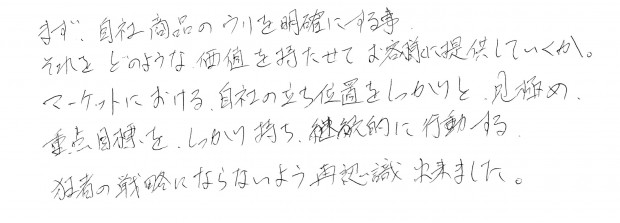 まず、自社商品のウリを明確にする事、
それをどのような価値を持たせてお客様に提供していくか。
マーケットにおける、自社の立ち位置をしっかりと、見極め、
重点目標を、しっかり持ち、継続的に行動する、
狂者の戦略にならないよう再認識出来ました。